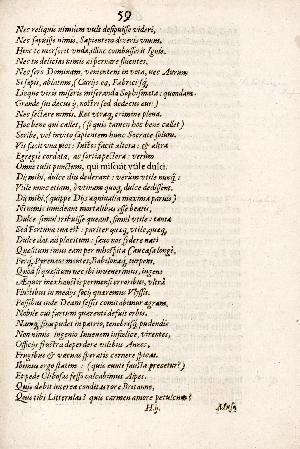 59
Nec reliquis nimium vult despuisse videri,
Nec sapuisse nimis, Sapientem diceris unum.
Hinc te merserit unda, illinc combusserit Ignis.
Nec tu delicias nimis aspernare fluentes,
Nec sero Dominam, venientem in vota, nec Aurum
Si sapis, ablatum, (Curijs ea, Fabricijsq;
Linque viris miseris miseranda Sophismata: quondam
Grande sui decus ij, nostri sed dedecus aui:)
Nec sectare nimis. Res vtraq; crimine plena.
Hoc bene qui callet, (si quis tamen hoc bene callet)
Scribe, vel invito sapientem hunc Socrate solum.
Vis facit vna pios: Iustos facit altera: &
Egregiè cordata, ac fortia pectora: verùm
Omne tulit punctum, qui miscuit vtile dulci.
Dij mihi, dulce diu dederant: verùm vtile nunq̃:
Vtile nunc etiam, ô vtinam quoq; dulce dedissent.
Dij mihi, (quippe Dijs æquiualia maxima paruis)
Ni nimis inuideant mortalibus esse beatis,
Dulce simul tribuisse queant, simul vtile: tanta
Sed Fortuna tua est: pariter quæq; vtile, quæq;
Dulce dat ad placitum: sæuo nos sydere nati
Quæsitum imus eam per inhospita Caucasa longè,
Perq; Pyrenæos montes, Babilonaq; turpem,
Quòd si quæsitum nec ibi invenerimus, ingens
Æquor inexhaustis permensi erroribus, vltrâ
Fluctibus in medijs socij quæremus Vlyssis.
Passibus inde Deam fessis comitabimur ægram,
Nobile cui furtum quærenti defuit orbis.
Namq; sinu pudet in patrio, tenebrisq; pudendis
Non nimis ingenio Iuuenem infœlice, virentes,
Officijs frustra deperdere vilibus Annos,
Frugibus & vacuas speratis cernere spicas.
Ibimus ergo statim: (quis eunti fausta precetur?)
Et pede Clibosas fesso calcabimus Alpes.
Quis dabit interea conditas rore Britanno,
Quis tibi Litterulas? quis carmen amore petulcum?
H.ij.
Musa